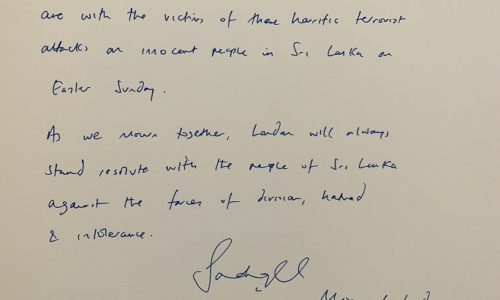 are with the victims of these horrific terrorist
attacks on innocent people in Sri Lanka on
Easter Sunday.
As we mourn together, London will always
stand resolute with the people of Sri Lanka
against the forces of division, hatred
& intolerance.